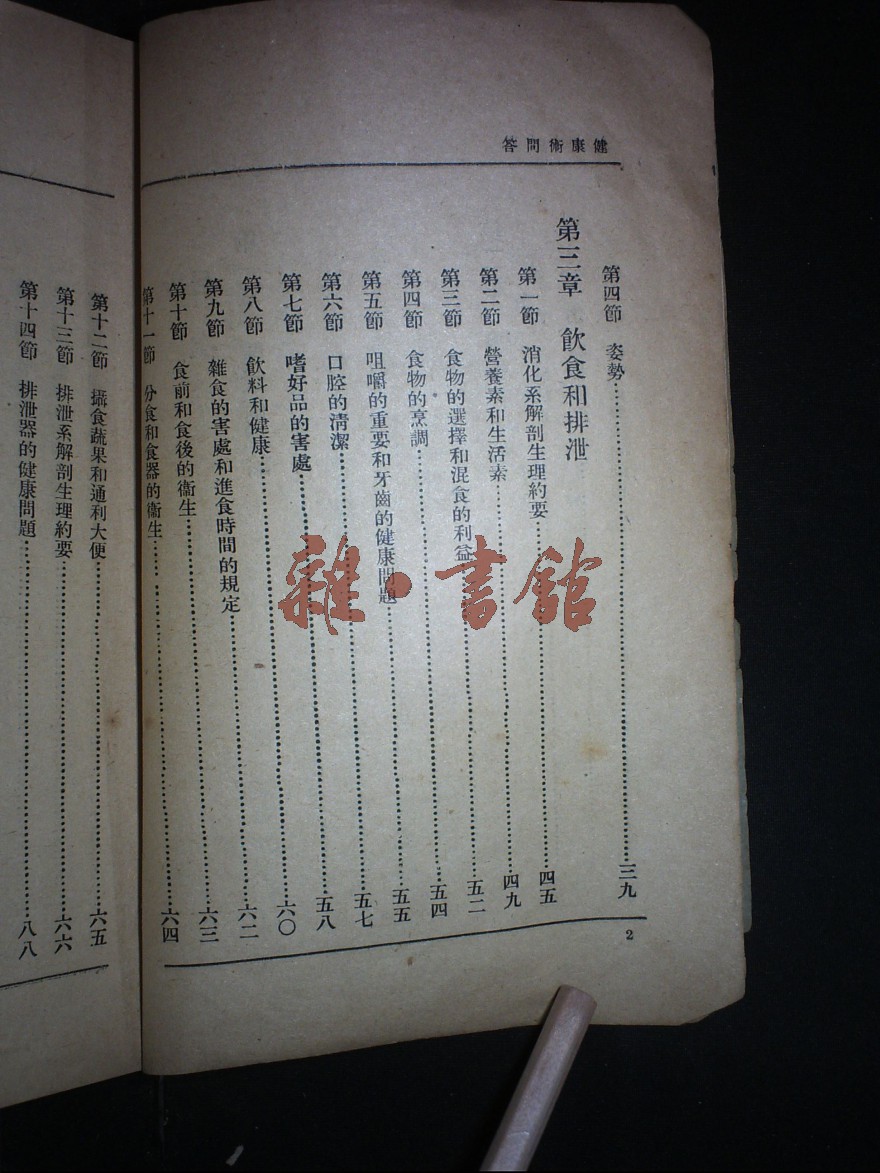 健康術問答
第四節 姿勢……三九
第三章 飲食和排泄
第一節 消化系解剖生理約要……四五
第二節 營養素和生活素……四九
第三節 食物的選擇和混食的利益……五二
第四節 食物的烹調……五四
第五節 咀嚼的重要和牙齒的健康問題……五五
第六節 口腔的清潔……五七
第七節 嗜好品的害處……五八
第八節 飲料和健康……六〇
第九節 雜食的害處和進食時間的規定……六二
第十節 食前和食後的衞生……六三
第十一節 分食和食器的衞生……六四
2
第十二節 攝食蔬果和通利大便……六五
第十三節 排泄系解剖生理約要……六六
第十四節 排泄器的健康問題……八八
雜·書館